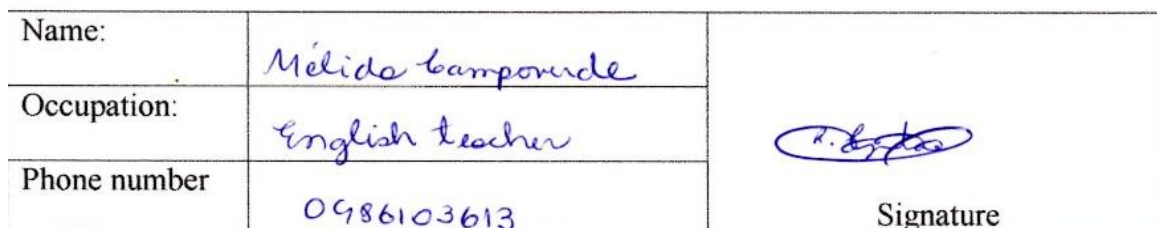 Name:
Mélida Campoverde
Occupation:
English teacher
Phone number
0986103613
Signature